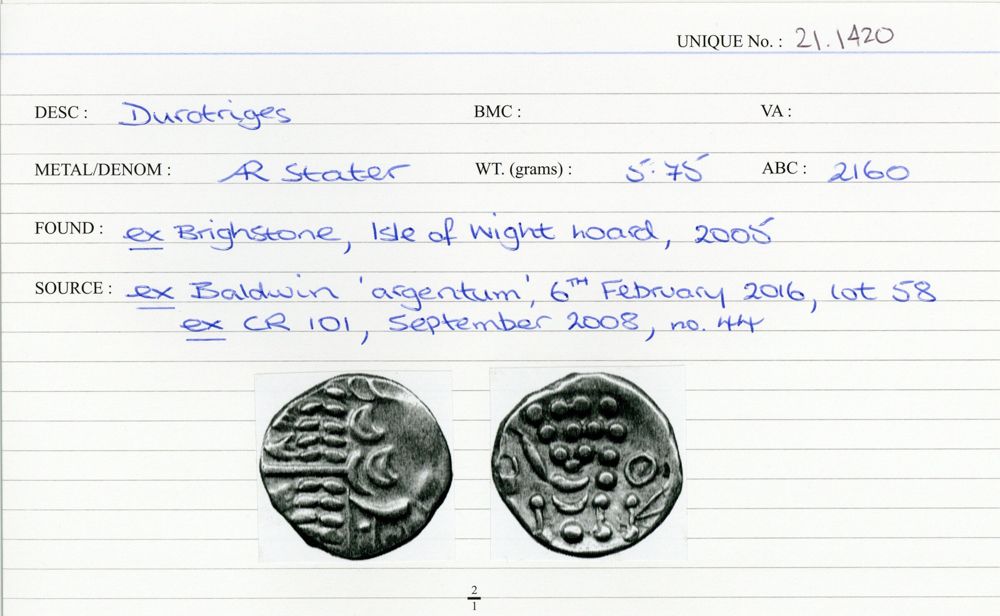 UNIQUE No. : 21.1420
DESC : Durotriges BMC : VA :
METAL/DENOM : AR Stater WT. (grams) : 5.75 ABC : 2160
FOUND : ex Brighstone, Isle of Wight hoard, 2005
SOURCE : ex Baldwin 'argentum', 6TH February 2016, lot 58
ex CR 101, September 2008, no. 44
2
1